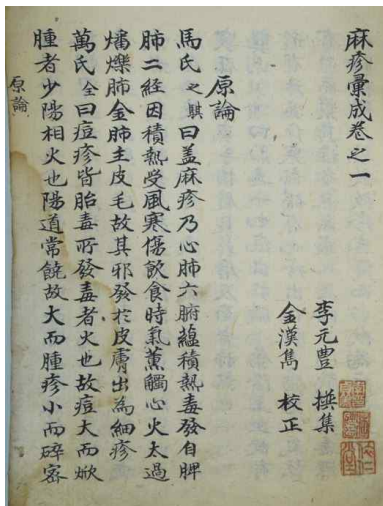 麻疹彙成卷之一
李元豊 撰集
金漢雋 校正
原論
馬氏之騏曰盖麻疹乃心肺六腑蘊積熱毒發自脾
肺二經因積熱受風寒傷飲食時氣薰觸心火太過
燔爍肺金肺主皮毛故其邪發於皮膚出為細疹
萬氏全曰痘疹皆胎毒所發毒者火也故痘大而焮
腫者少陽相火也陽道常饒故大而腫疹小而碎密
原論